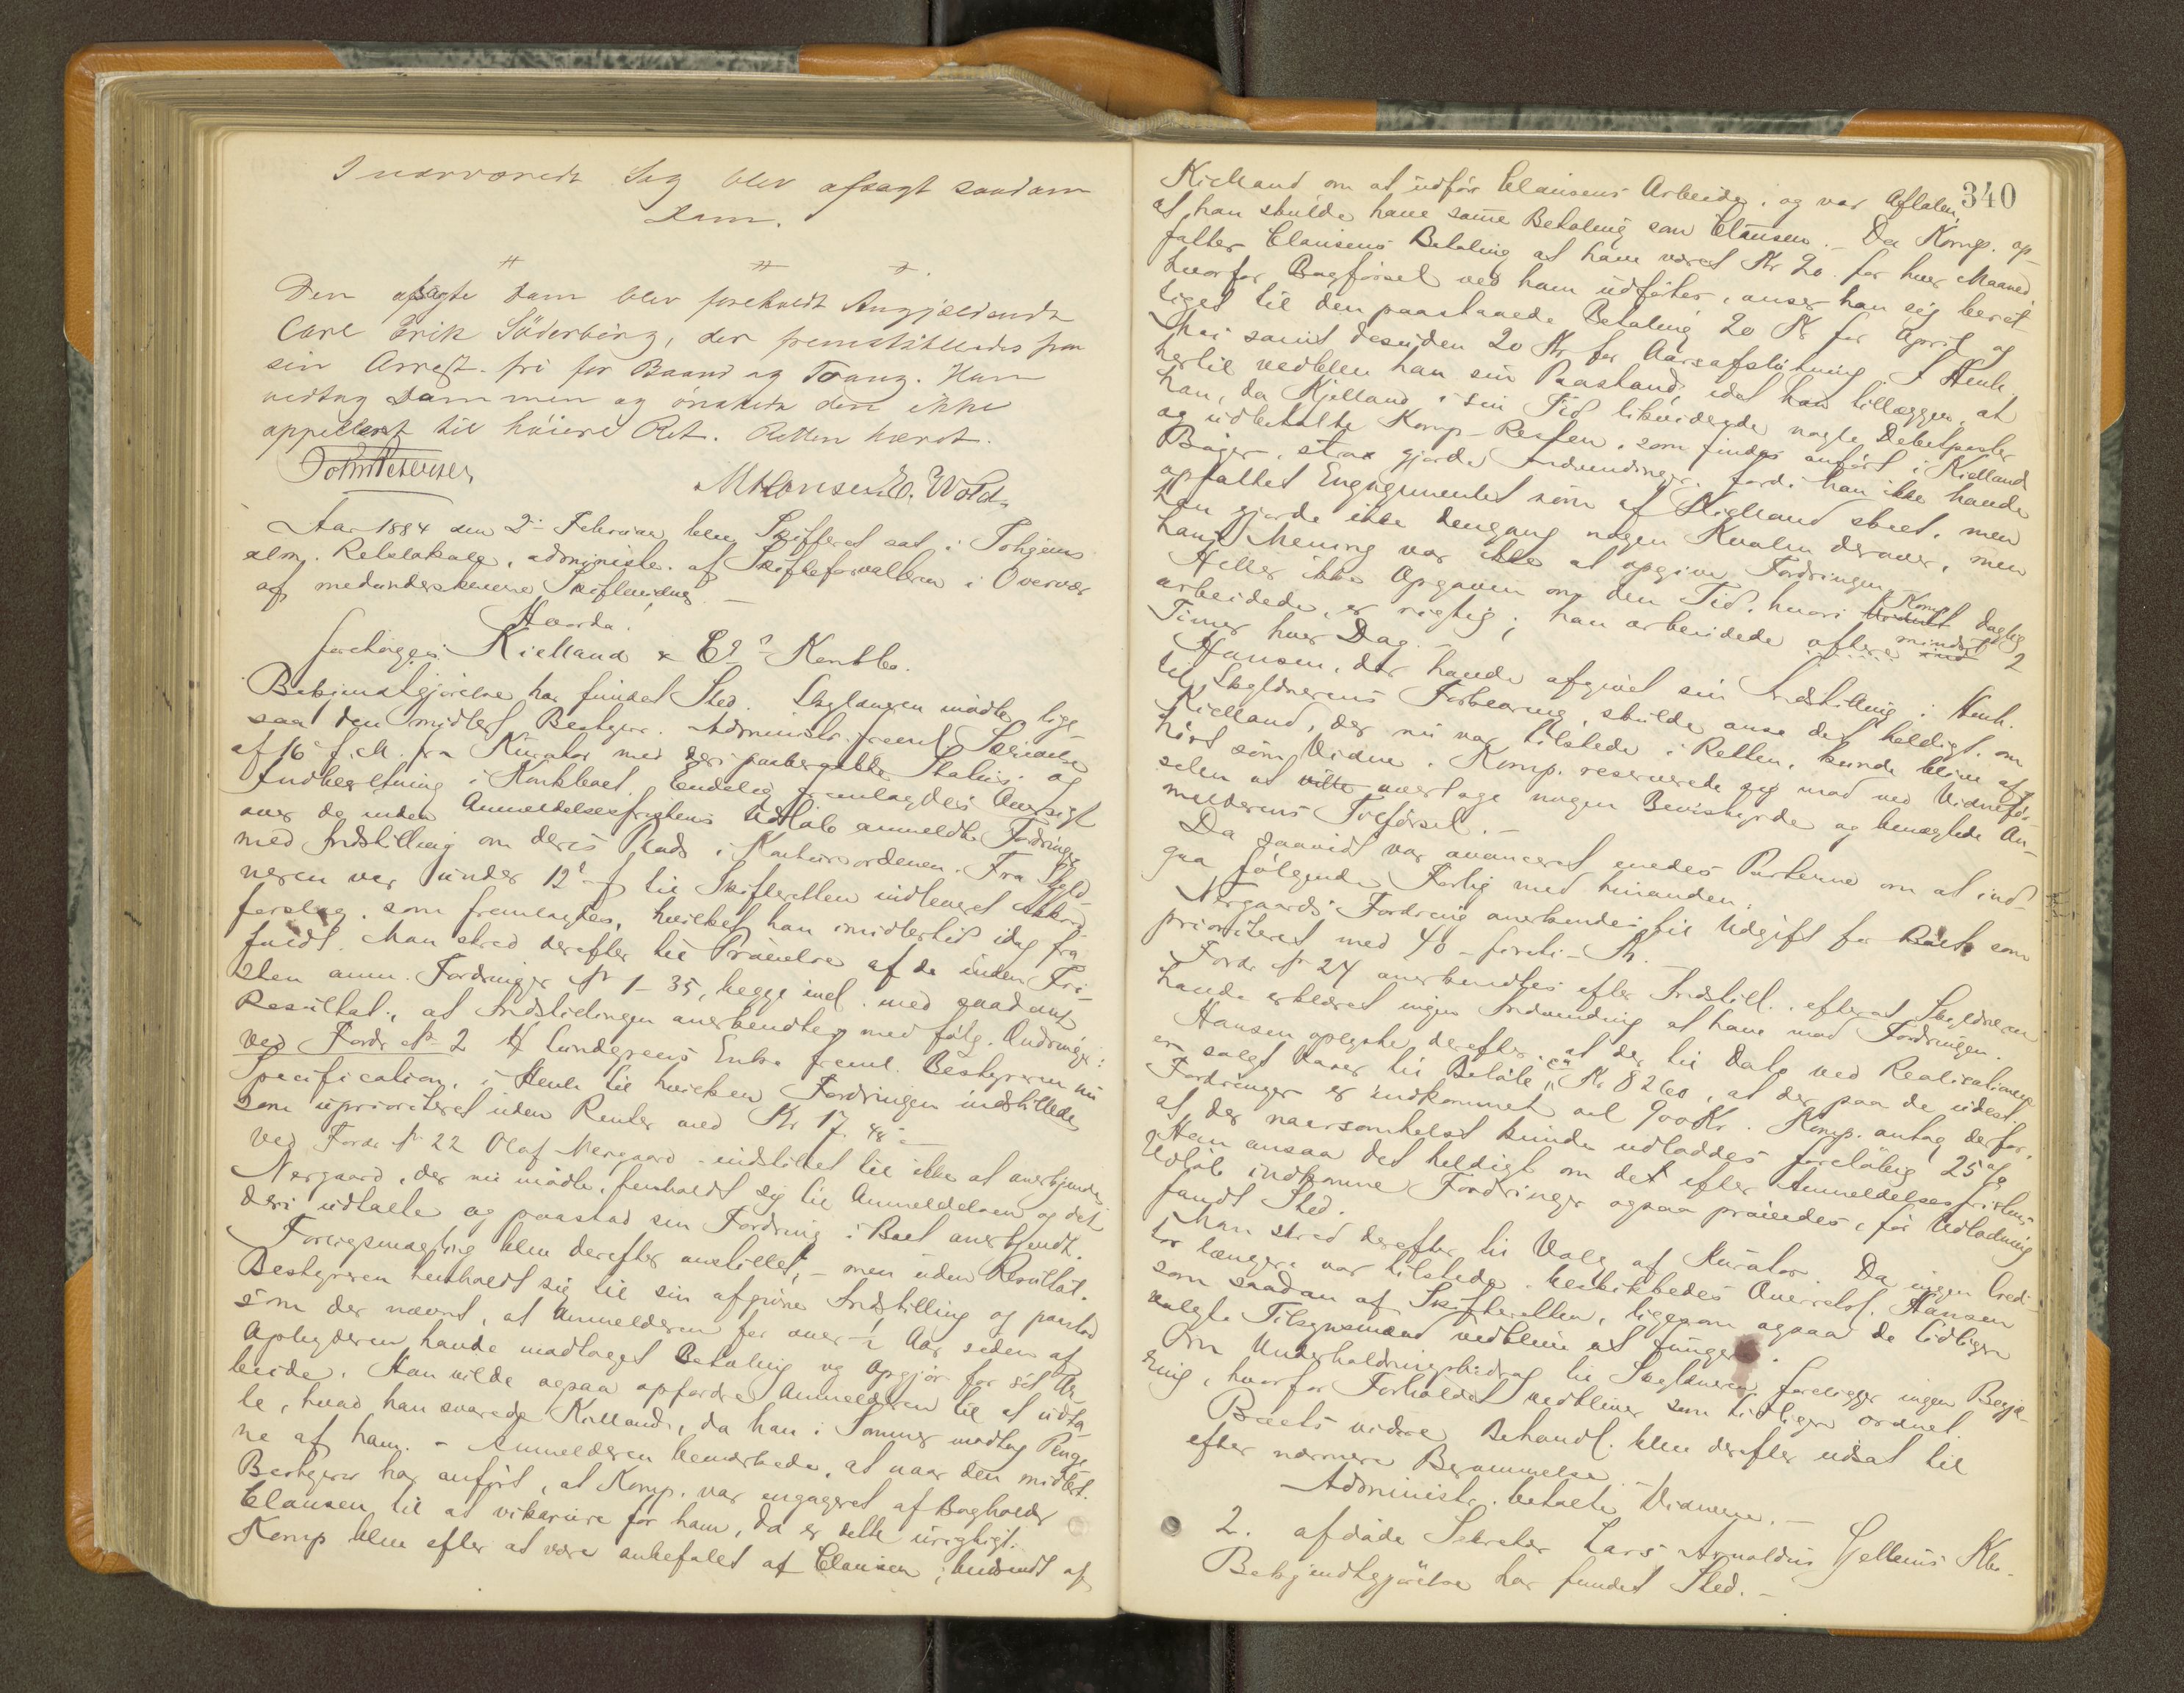 I nærværende Sag blev afsagt saadan
Dom.
Den afsagte Dom blev foreholdt Angjældende
Carl Erik Söderberg, der fremstilledes fra
sin Arrest fri for Baand og Tvang. Han
vedtog Dommen og ønskede den ikke
appelleret til høiere Ret. Retten hævet.
M Hansen. O. Wold.
Aar 1884 den 2de Februar blev Skifteret sat i
alm. Retslokale, administr. af Skifteforvalteren i Overvær
af medunderskrevne Skiftevidner.
Hvorda:
foretoges: Kielland & Cos Konkbo.
Bekjendtgjørelse har fundet Sted. Skyldneren mødte lige-
saa den midlert. Bestyrer. Administr. freml. Skrivelse
af 16de f. M. fra Kurator med deri paaberaabte Status og
Indberetning i Konkboet. Endelig fremlagdes Oversigt
over de inden Anmeldelsesfristens Udløb anmeldte Fordringer
med Indstilling om deres Plads i Konkursordenen. Fra Skyld-
neren var under 12te f. til Skifteretten indleveret Akkord-
forslag, som fremlagdes, hvilket han imidlertid idag fra-
faldt. Man skred derefter til Prøvelse af de inden Fri-
sten anm. Fordringer No 1-35, begge incl. med saadant
Resultat, at Indstillingen anerkendtes med følg. Ændringer:
Ved Fordr No 2 Lundgreens Enke freml. Bestyreren nu
Specification, i Henh. til hvilken Fordringen indstilledes
som uprioriteret uden Renter med Kr 17.48
Ved Fordr No 22 Olaf Nergaard - indstillet til ikke at anerkjendes
Nergaard, der nu mødte, henholdt sig til Anmeldelsen og det
deri udtalte og paastod sin Fordring i Boet anerkjendt.
Forligsmægling blev derefter anstillet, - men uden Resultat.
Bestyreren henholdt sig til sin afgivne Indstilling og paastod
som der nævnt, at Anmelderen for over ½ Aar siden af
Opbyderen havde modtaget Betaling og Opgjør for sit Ar-
beide. Han vilde ogsaa opfordre Anmelderen til at udta-
le, hvad han svarede Kielland, da han i Sommer modtog Penge-
ne af ham. - Anmelderen bemærkede, at naar den midlert.
Bestyrer har anført, at Komp. var engageret af Bogholder
Clausen til at vikariere for ham, da er dette urigtigt.
Komp blev efter at være anbefalet af Clausen, anvendt af
340
Kielland om at udføre Clausens Arbeide, og var Aftalen,
at han skulde have samme Betaling som Clausen. - Da Komp. op-
fatter Clausens Betaling at have været Kr 20 for hver Maaned,
hvorfor Bogførsel ved ham udføtes, anser han sig beret-
tiget til den paastaaede Betaling 20 Kr for April og
Mai samt desuden 20 Kr for Aarsafslutning. I Henh.
hertil vedblev han sin Paastand, idet han tillægger, at
han, da Kjelland i sin Tid likviderede nogle Debetposter
og udbetalte Komp. Resten, som findes anført i Kiellands
Bøger, strax gjorde Indvendinger, fordi han ikke havde
opfattet Engagementet som af Kielland skeet, men
han gjorde ikke dengang nogen Kvalm derover, men
hans Mening var ikke at opgive Fordringen.
Heller ikke Opgaven om den Tid, hvori Komp. daglig
arbeidede, er rigtig; han arbeidede oftere mindst 2
Timer hver Dag. -
Hansen, der havde afgivet sin Indstilling i Henh.
til Skyldnerens Forklaring, skulde anse det heldigt, om
Kielland, der nu var tilstede i Retten, kunde blive af-
hørt som Vidne. Komp. reserverede sig mod ved Vidneføs-
selen at ville overtage nogen Bevisbyrde og benægtede An-
melderens Tilførsel. -
Da saavidt var avanceret enedes Parterne om at ind-
gaa følgende Forlig med hinanden:
Nergaards Fordring anerkendes til Udgift for Boet som
prioriteret med 40 - førti - Kr.
Fordr No 24 anerkendtes efter Indstill. efterat Skyldneren
havde erklæret ingen Indvending at have mod Fordringen.
Hansen oplyste derefter, at der til Dato ved Realisationen
er solgt Varer til Beløb ca Kr 8260, at der paa de udest.
Fordringer er indkommet ca 900 Kr. Komp. antog derfor,
at der naarsomhelst kunde udloddes foreløbig 25 %.
Han ansaa det heldigt om det efter Anmeldelsesfristens
Udløb indkomne Fordringer ogsaa prøvedes, før Udlodning
fandt Sted.
Man skred derefter til Valg af Kurator. Da ingen Credi-
tor længere var tilstede, beskikkedes Overretssf. Hansen
som saadan af Skifteretten, ligesom ogsaa de tidligere
valgte Tilsynsmænd vedblive at fungere.
Om Underholdningsbidrag til Skyldneren foreligger ingen Begjæ-
ring, hvorfor Forholdet vedbliver som tidligere ordnet.
Boets videre Behandl. blev derefter udsat til
efter nærmere Berammelse. -
Administr. betalte Vidnerne. -
2. afdøde Sekretær Lars Arnoldus Gellius
Bekjendtgjørelse har fundet Sted. -